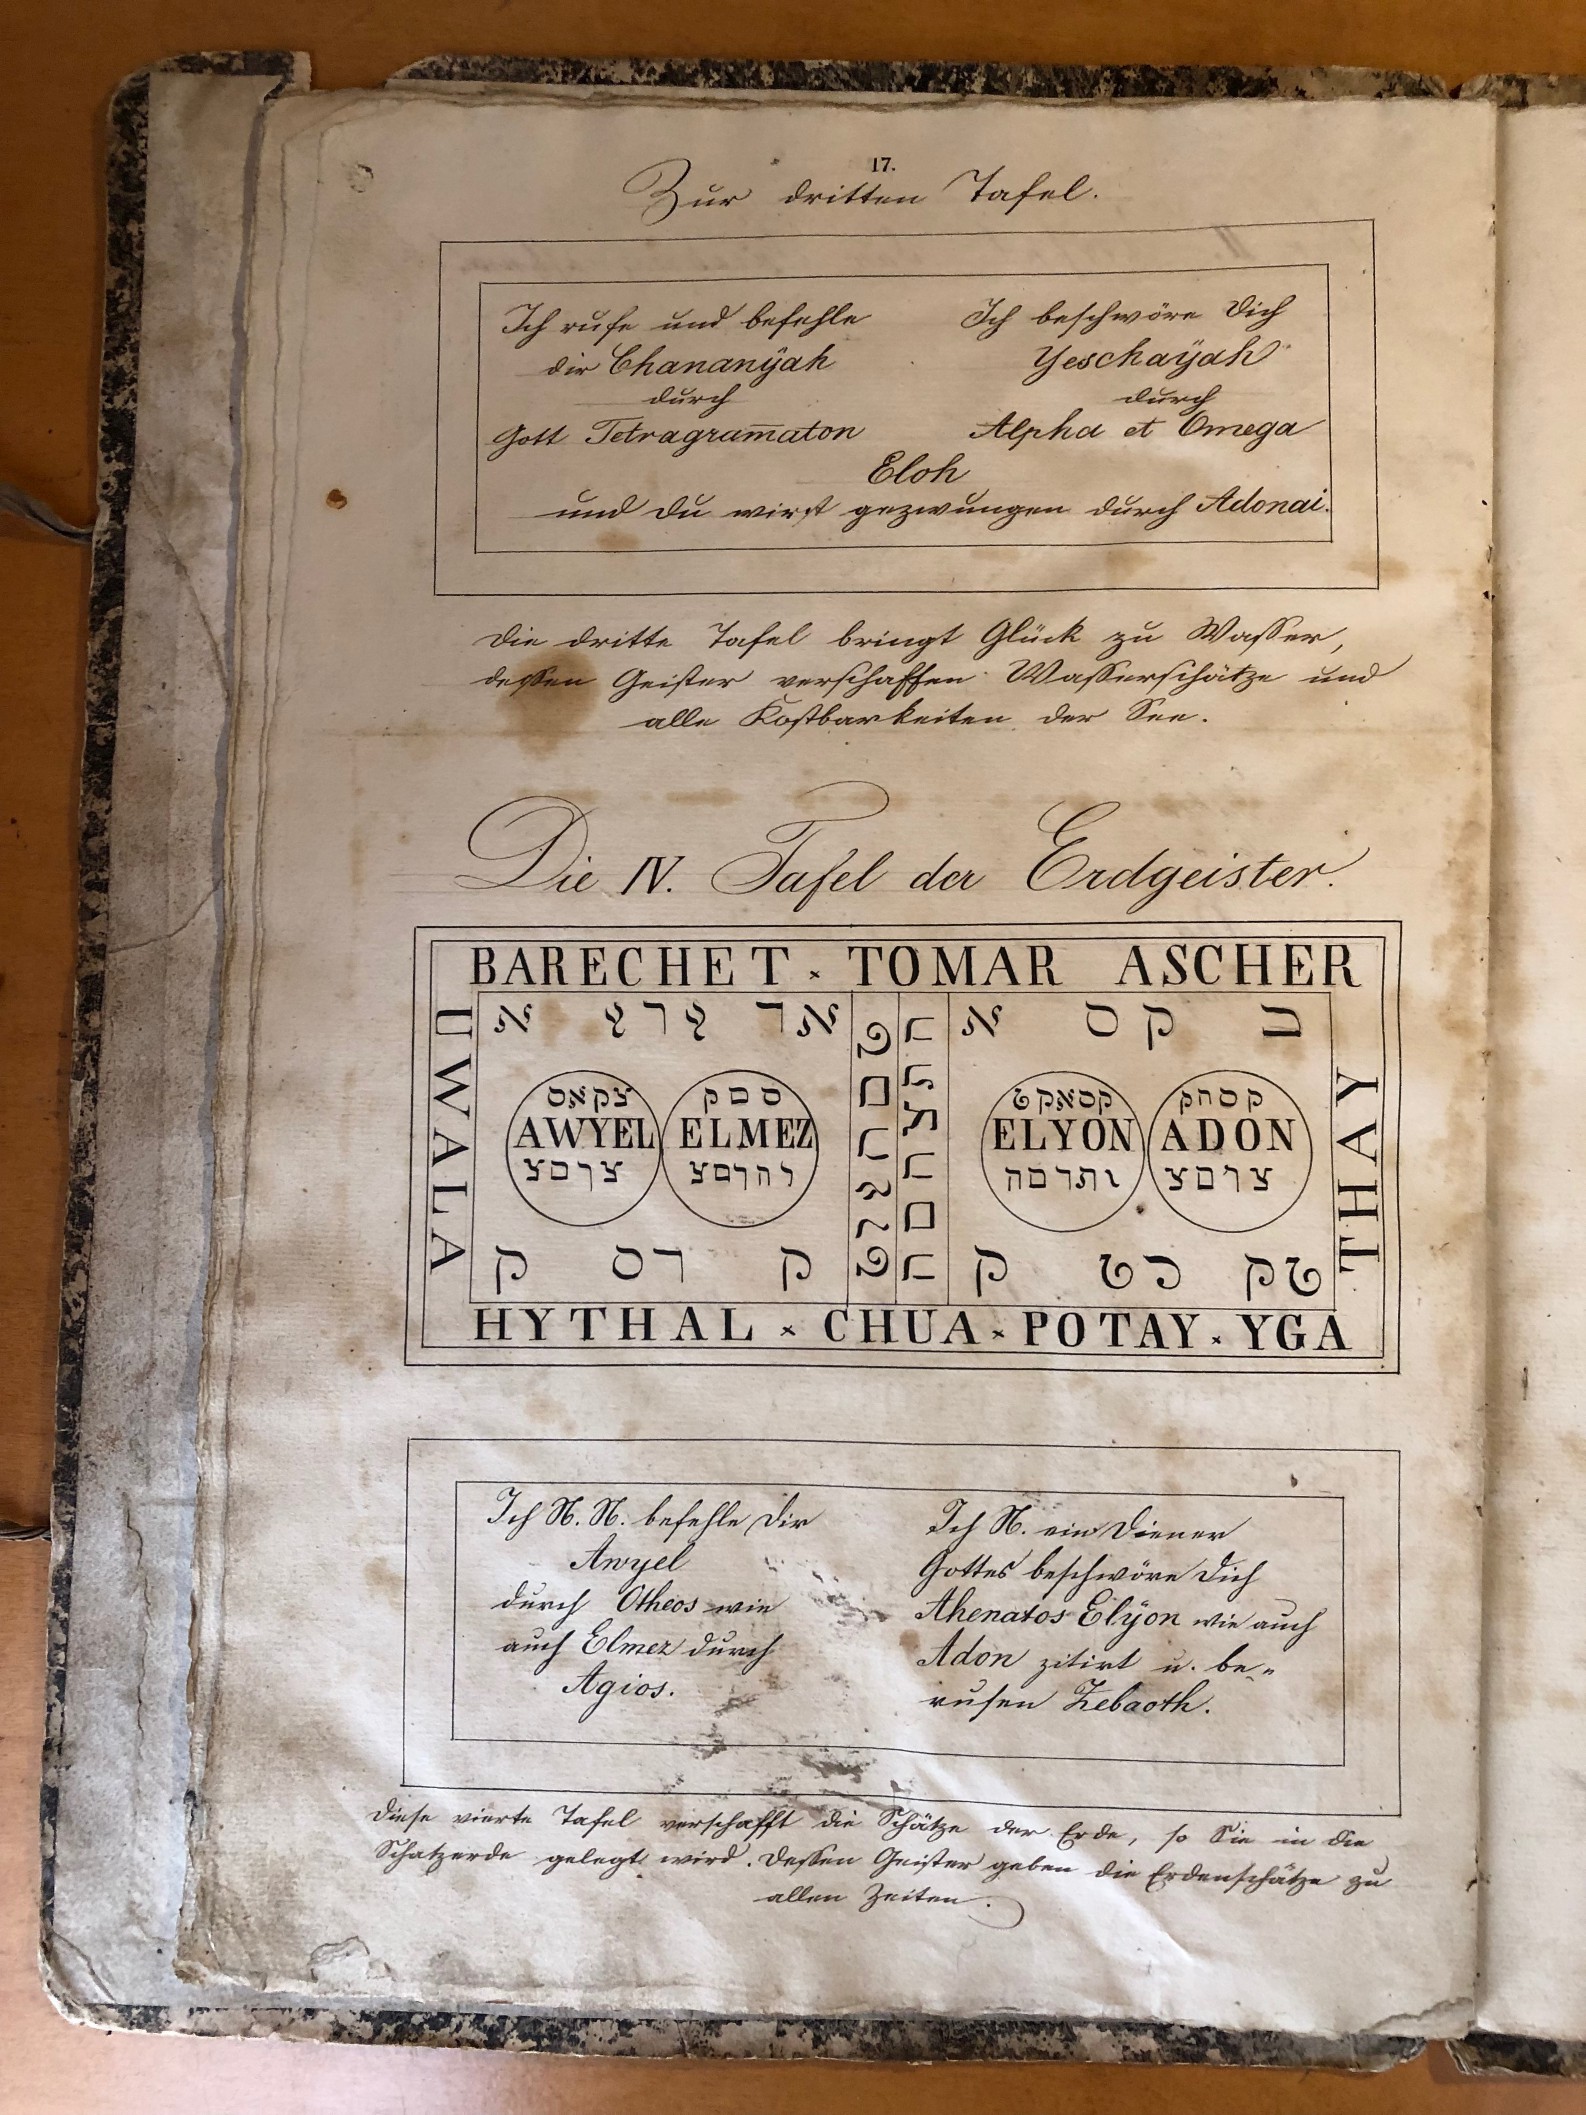 17.
Zur dritten Tafel.
Ich rufe und befehle
dir Chananÿah
durch
Gott Tetragram̅aton
Ich beschwöre Dich
Yeschaÿah
durch
Alpha et Omega
Eloh
und du wirst gezwungen durch Adonai.
Die dritte Tafel bringt Glück zu Wasser,
dessen Geister verschaffen Wasserschätze und
alle Kostbarkeiten der See.
Die IV. Tafel der Erdgeister.
BARECHET × TOMAR ASCHER
UWALA
THAY
AWYEL
ELMEZ
ELYON
ADON
HYTHAL × CHUA × POTAY × YGA
Ich N. N. befehle Dir
Awyel
durch Otheos wie
auch Elmez durch
Agios.
Ich N. ein Diener
Gottes beschwöre Dich
Ahenatos Elÿon wie auch
Adon zitirt u. be„
rufen Zebaoth.
Diese vierte Tafel verschafft die Schätze der Erde, so Sie in die
Schatzerde gelegt wird. Dessen Geister geben die Erdenschätze zu
allen Zeiten.